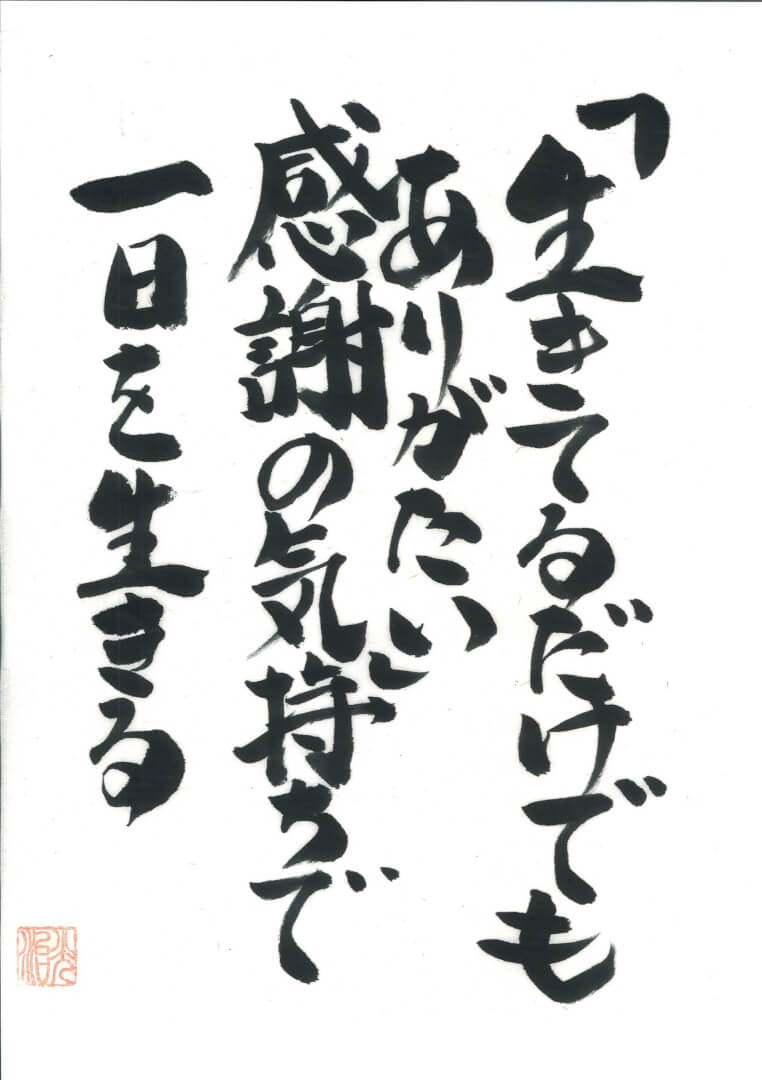 「生きてるだけでも
ありがたい」
感謝の気持ちで
一日を生きる